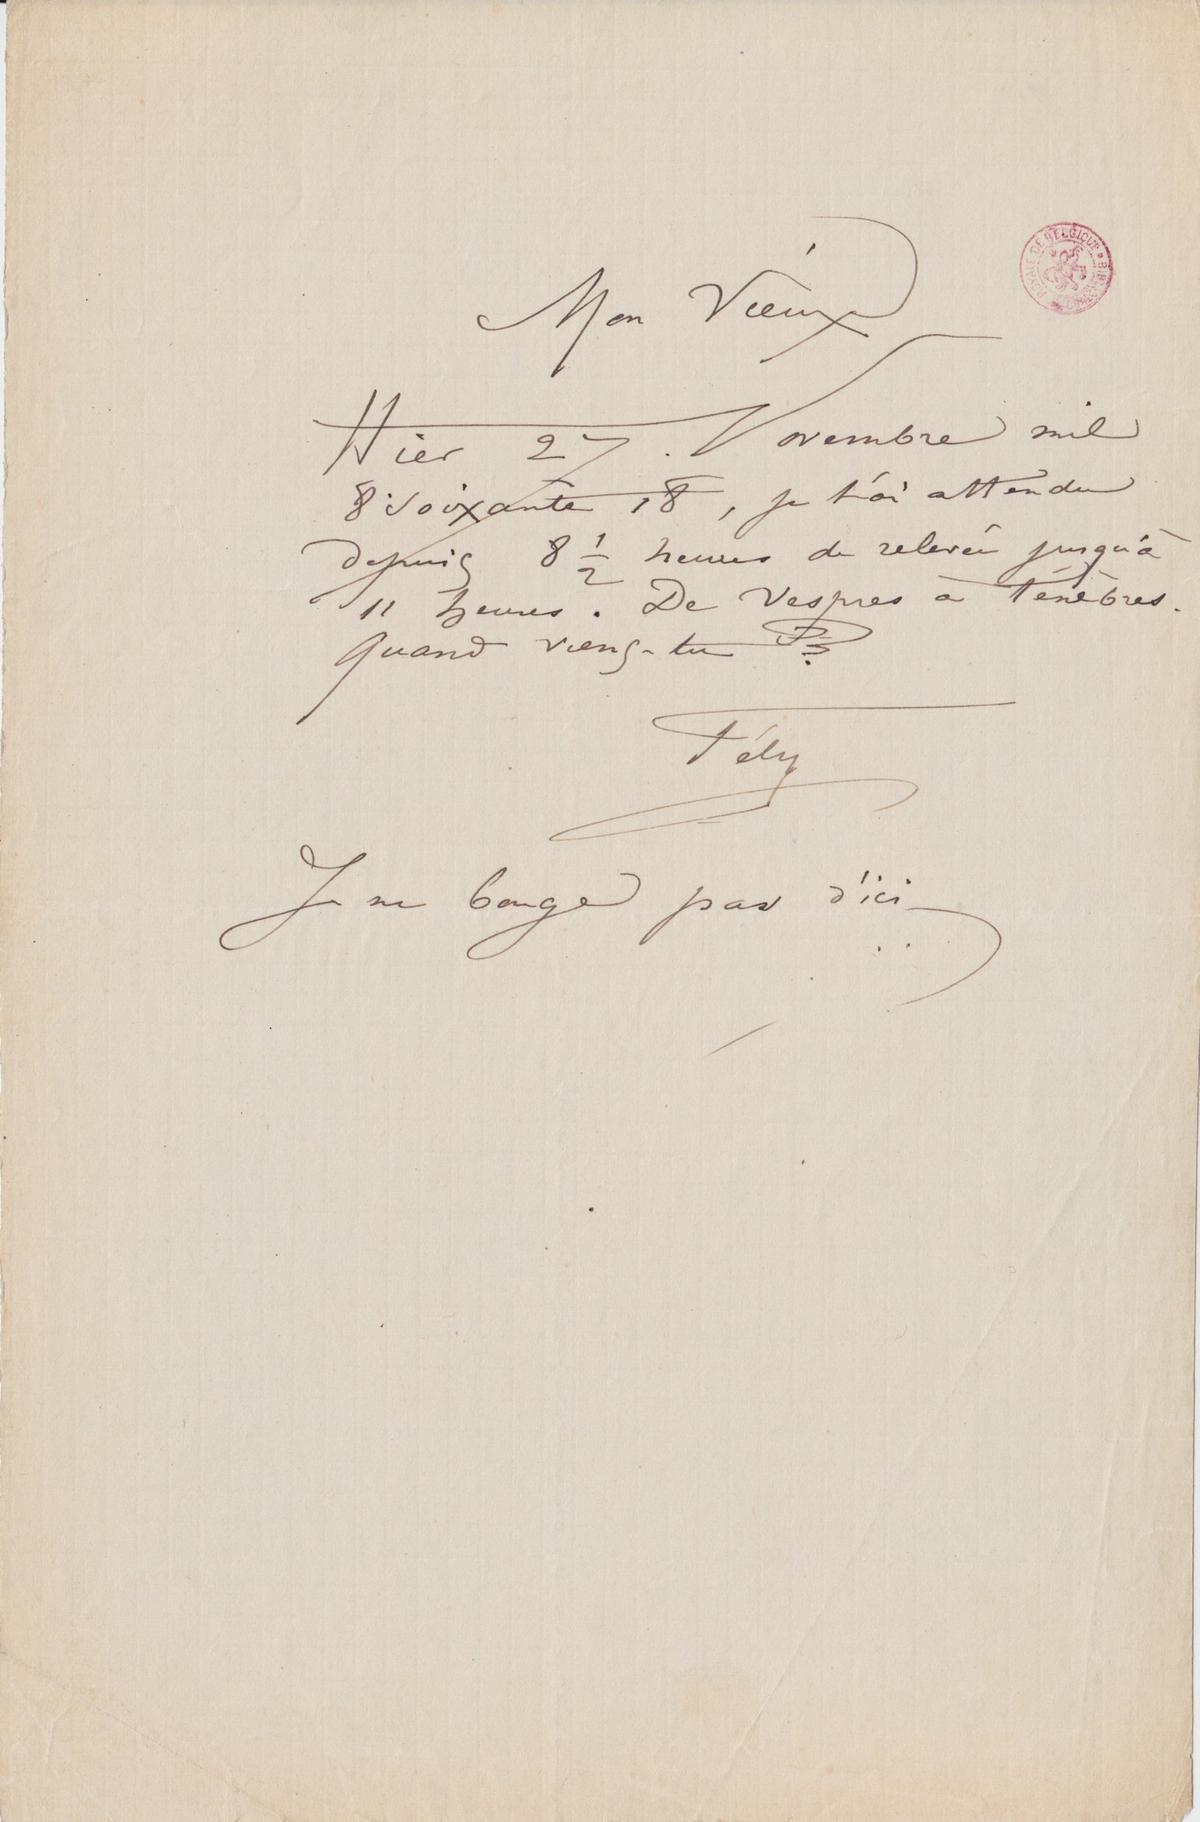 Mon Vieux
Hier 27. Novembre mil
8 soixante 18, je t'ai attendu
depuis 8 1/2 heures de relevée jusqu'à
11 heures. De Vespres à Ténèbres.
Quand viens-tu ??
Fély
Je ne bouge pas d'ici
BIBLIOTH. ROYALE DE BELGIQUE